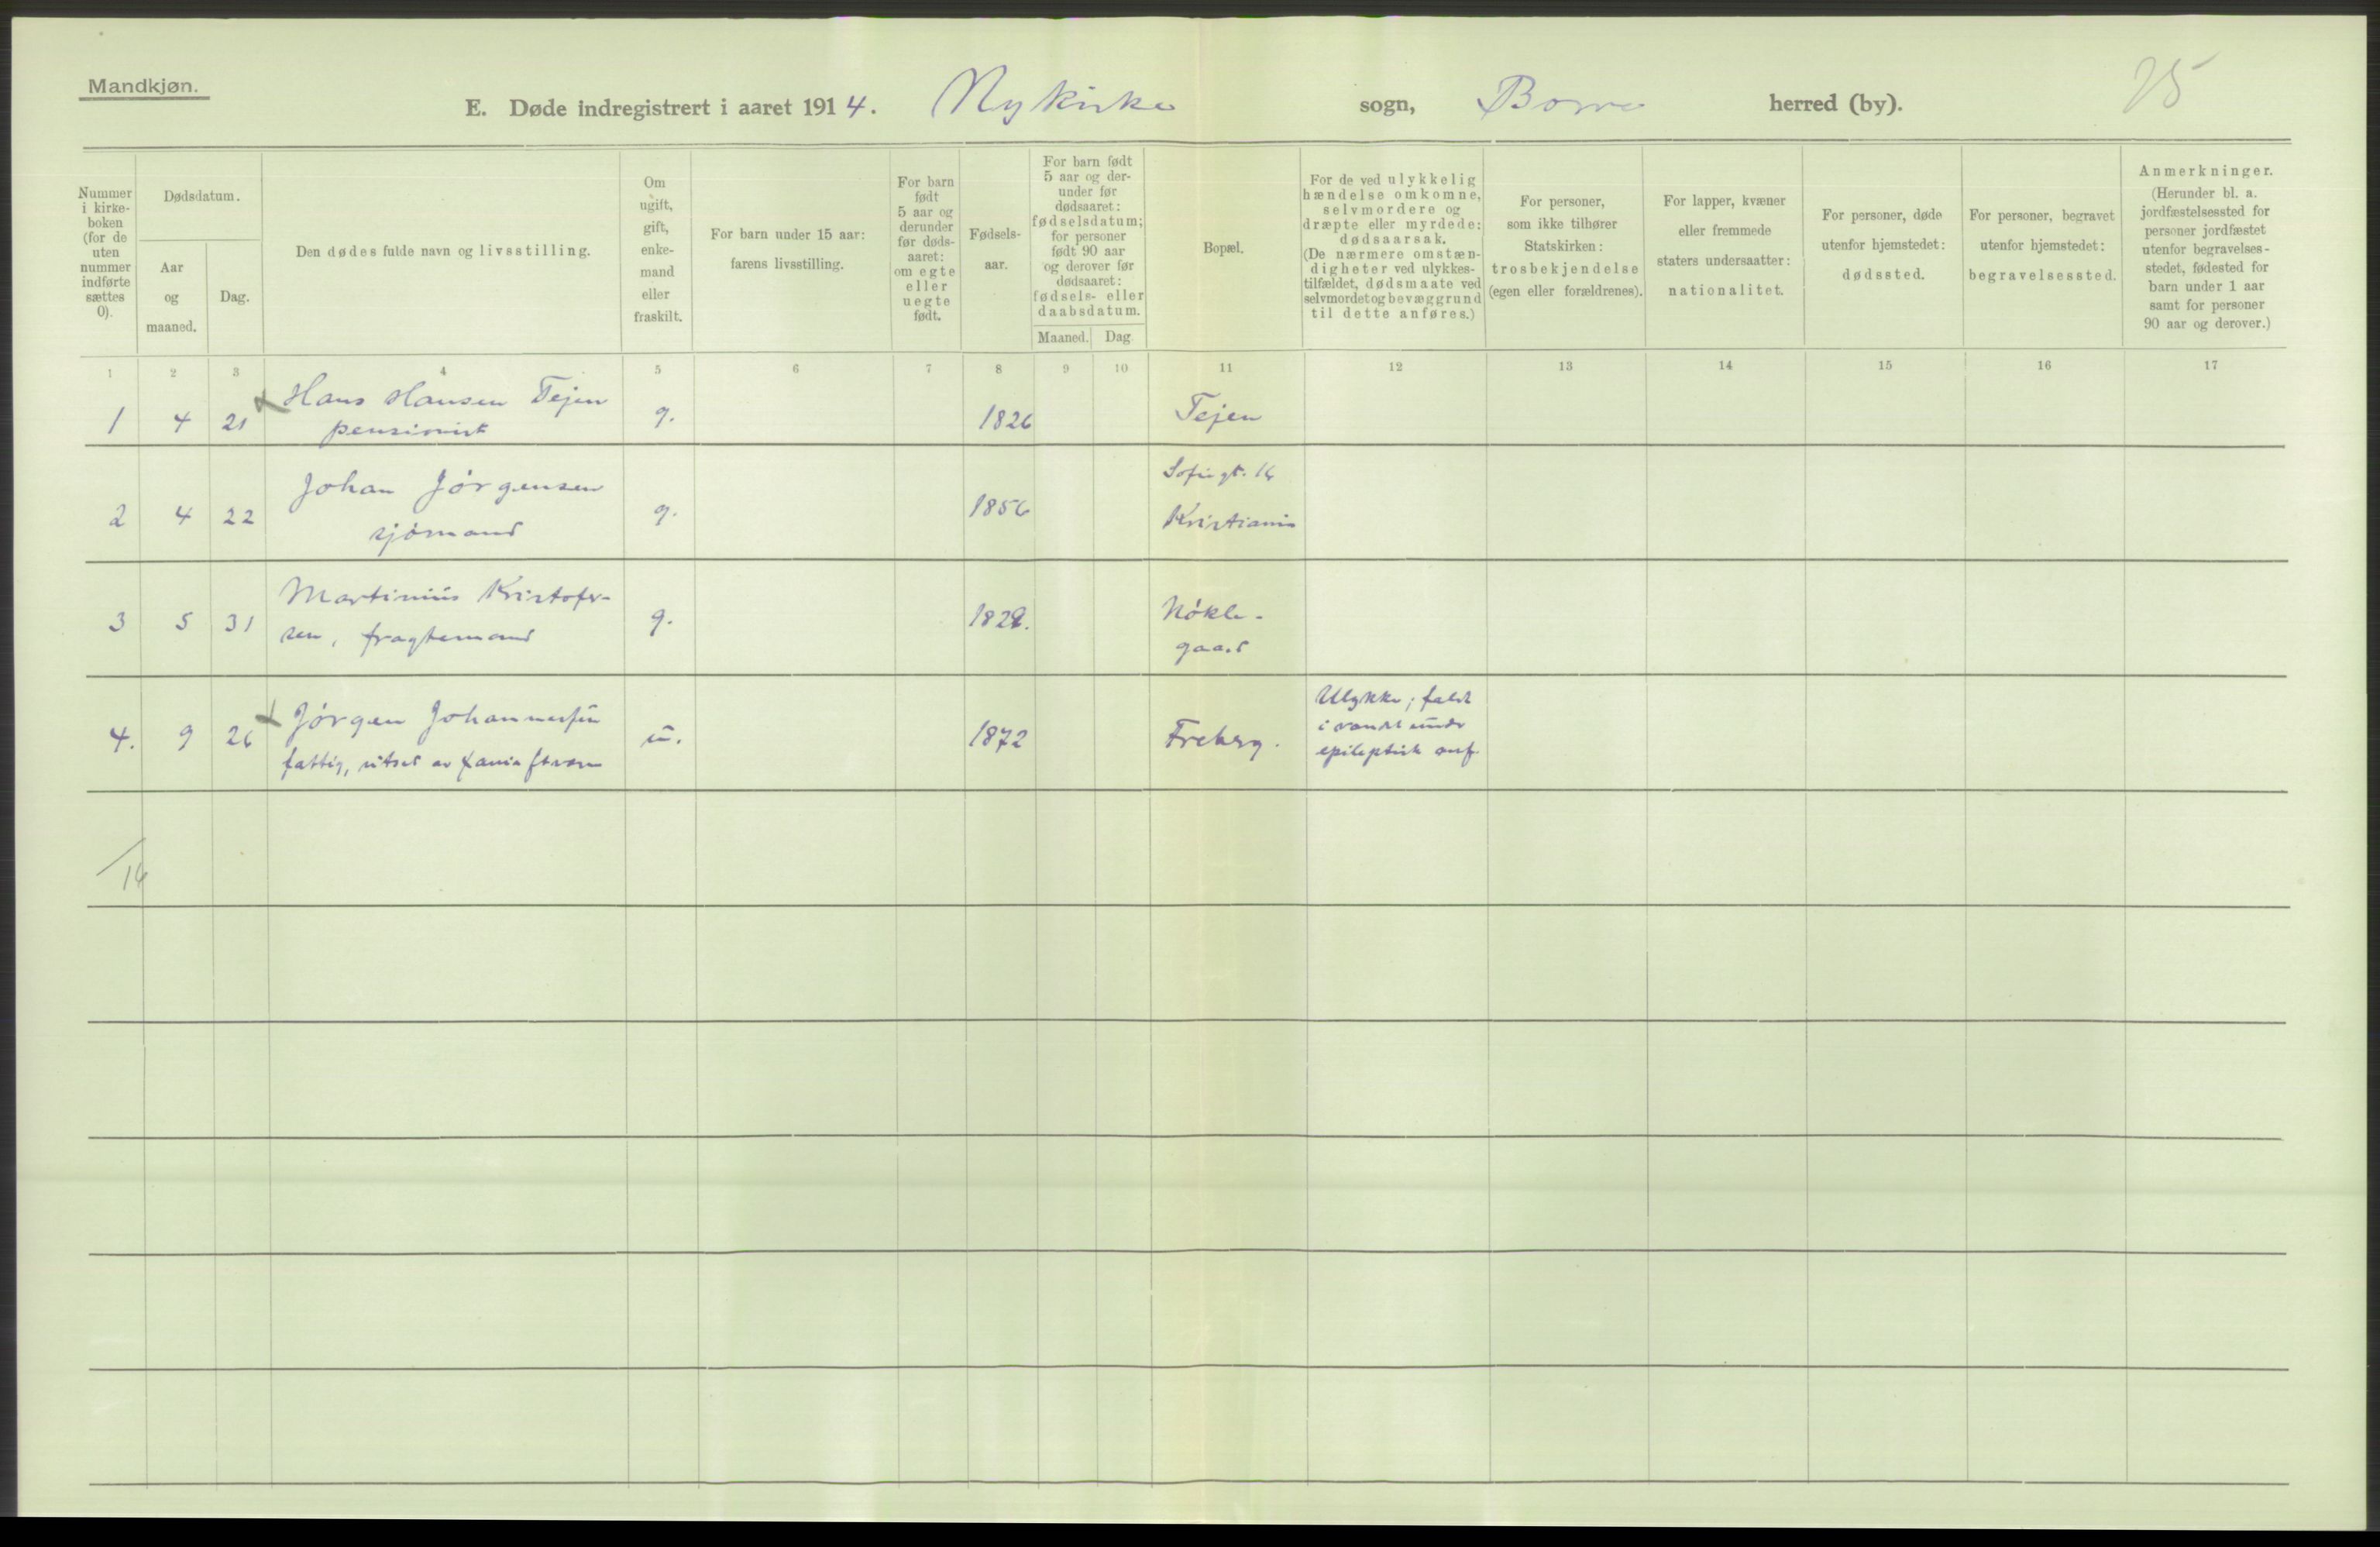 Mandkjøn.
E. Døde indregistrert i aaret 1914. Nykirke sogn, Borre herred (by).
25
Nummer
i kirke-
boken
(for de
uten
nummer
indførte
sættes
0).
Dødsdatum.
Aar
og
maaned.
Dag.
Den dødes fulde navn og livsstilling.
Om
ugift,
gift,
enke-
mand
eller
fraskilt.
For barn under 15 aar:
farens livsstilling.
For barn
født
5 aar og
derunder
før døds-
aaret:
om egte
eller
uegte
født.
Fødsels-
aar.
For barn født
5 aar og der-
under før
dødsaaret:
fødselsdatum;
for personer
født 90 aar
og derover før
dødsaaret:
fødsels- eller
daabsdatum.
Maaned. Dag
Bopæl.
For de ved ulykkelig
hændelse omkomne,
selvmordere og
dræpte eller myrdede:
dødsaarsak.
(De nærmere omstæn-
digheter ved ulykkes-
tilfældet, dødsmaate ved
selvmordet og bevæggrund
til dette anføres.)
For personer,
som ikke tilhører
Statskirken:
trosbekjendelse
(egen eller forældrenes).
For lapper, kvæner
eller fremmede
staters undersaatter:
nationalitet.
For personer, døde
utenfor hjemstedet:
dødssted.
For personer, begravet
utenfor hjemstedet:
begravelsessted.
Anmerkninger.
(Herunder bl. a.
jordfæstelsessted for
personer jordfæstet
utenfor begravelses-
stedet, fødested for
barn under 1 aar
samt for personer
90 aar og derover.)
1 2 3 4 5 6 7 8 9 10 11 12 13 14 15 16 17
1 4 21 Hans Hansen Tejen g. 1826 Tejen
pensionist
2 4 22 Johan Jørgensen g. 1856 Sofiegt. 14
sjømand Kristiania
3 5 31 Martinius Kristofer- g. 1829. Nøkle-
sen, fragtemand gaard
4. 9 26 Jørgen Johannessen u. 1872 Freberg. Ulykke; faldt
i vandet under
fattig, av epileptisk anf.
14